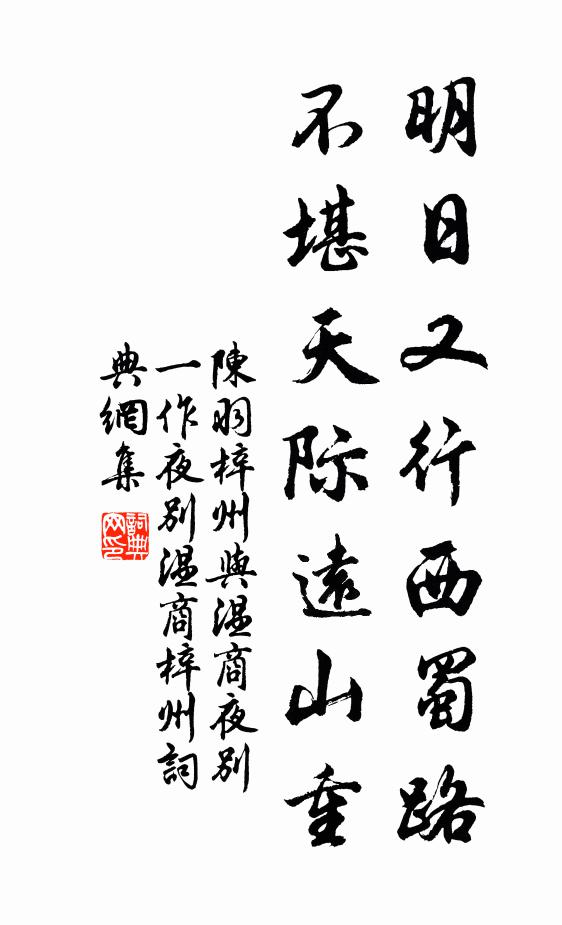 明日又行西蜀路
不堪天际遠山重
陳羽梓州與溫商夜別
一作夜別溫商梓州詞
典網集
詞典
网印